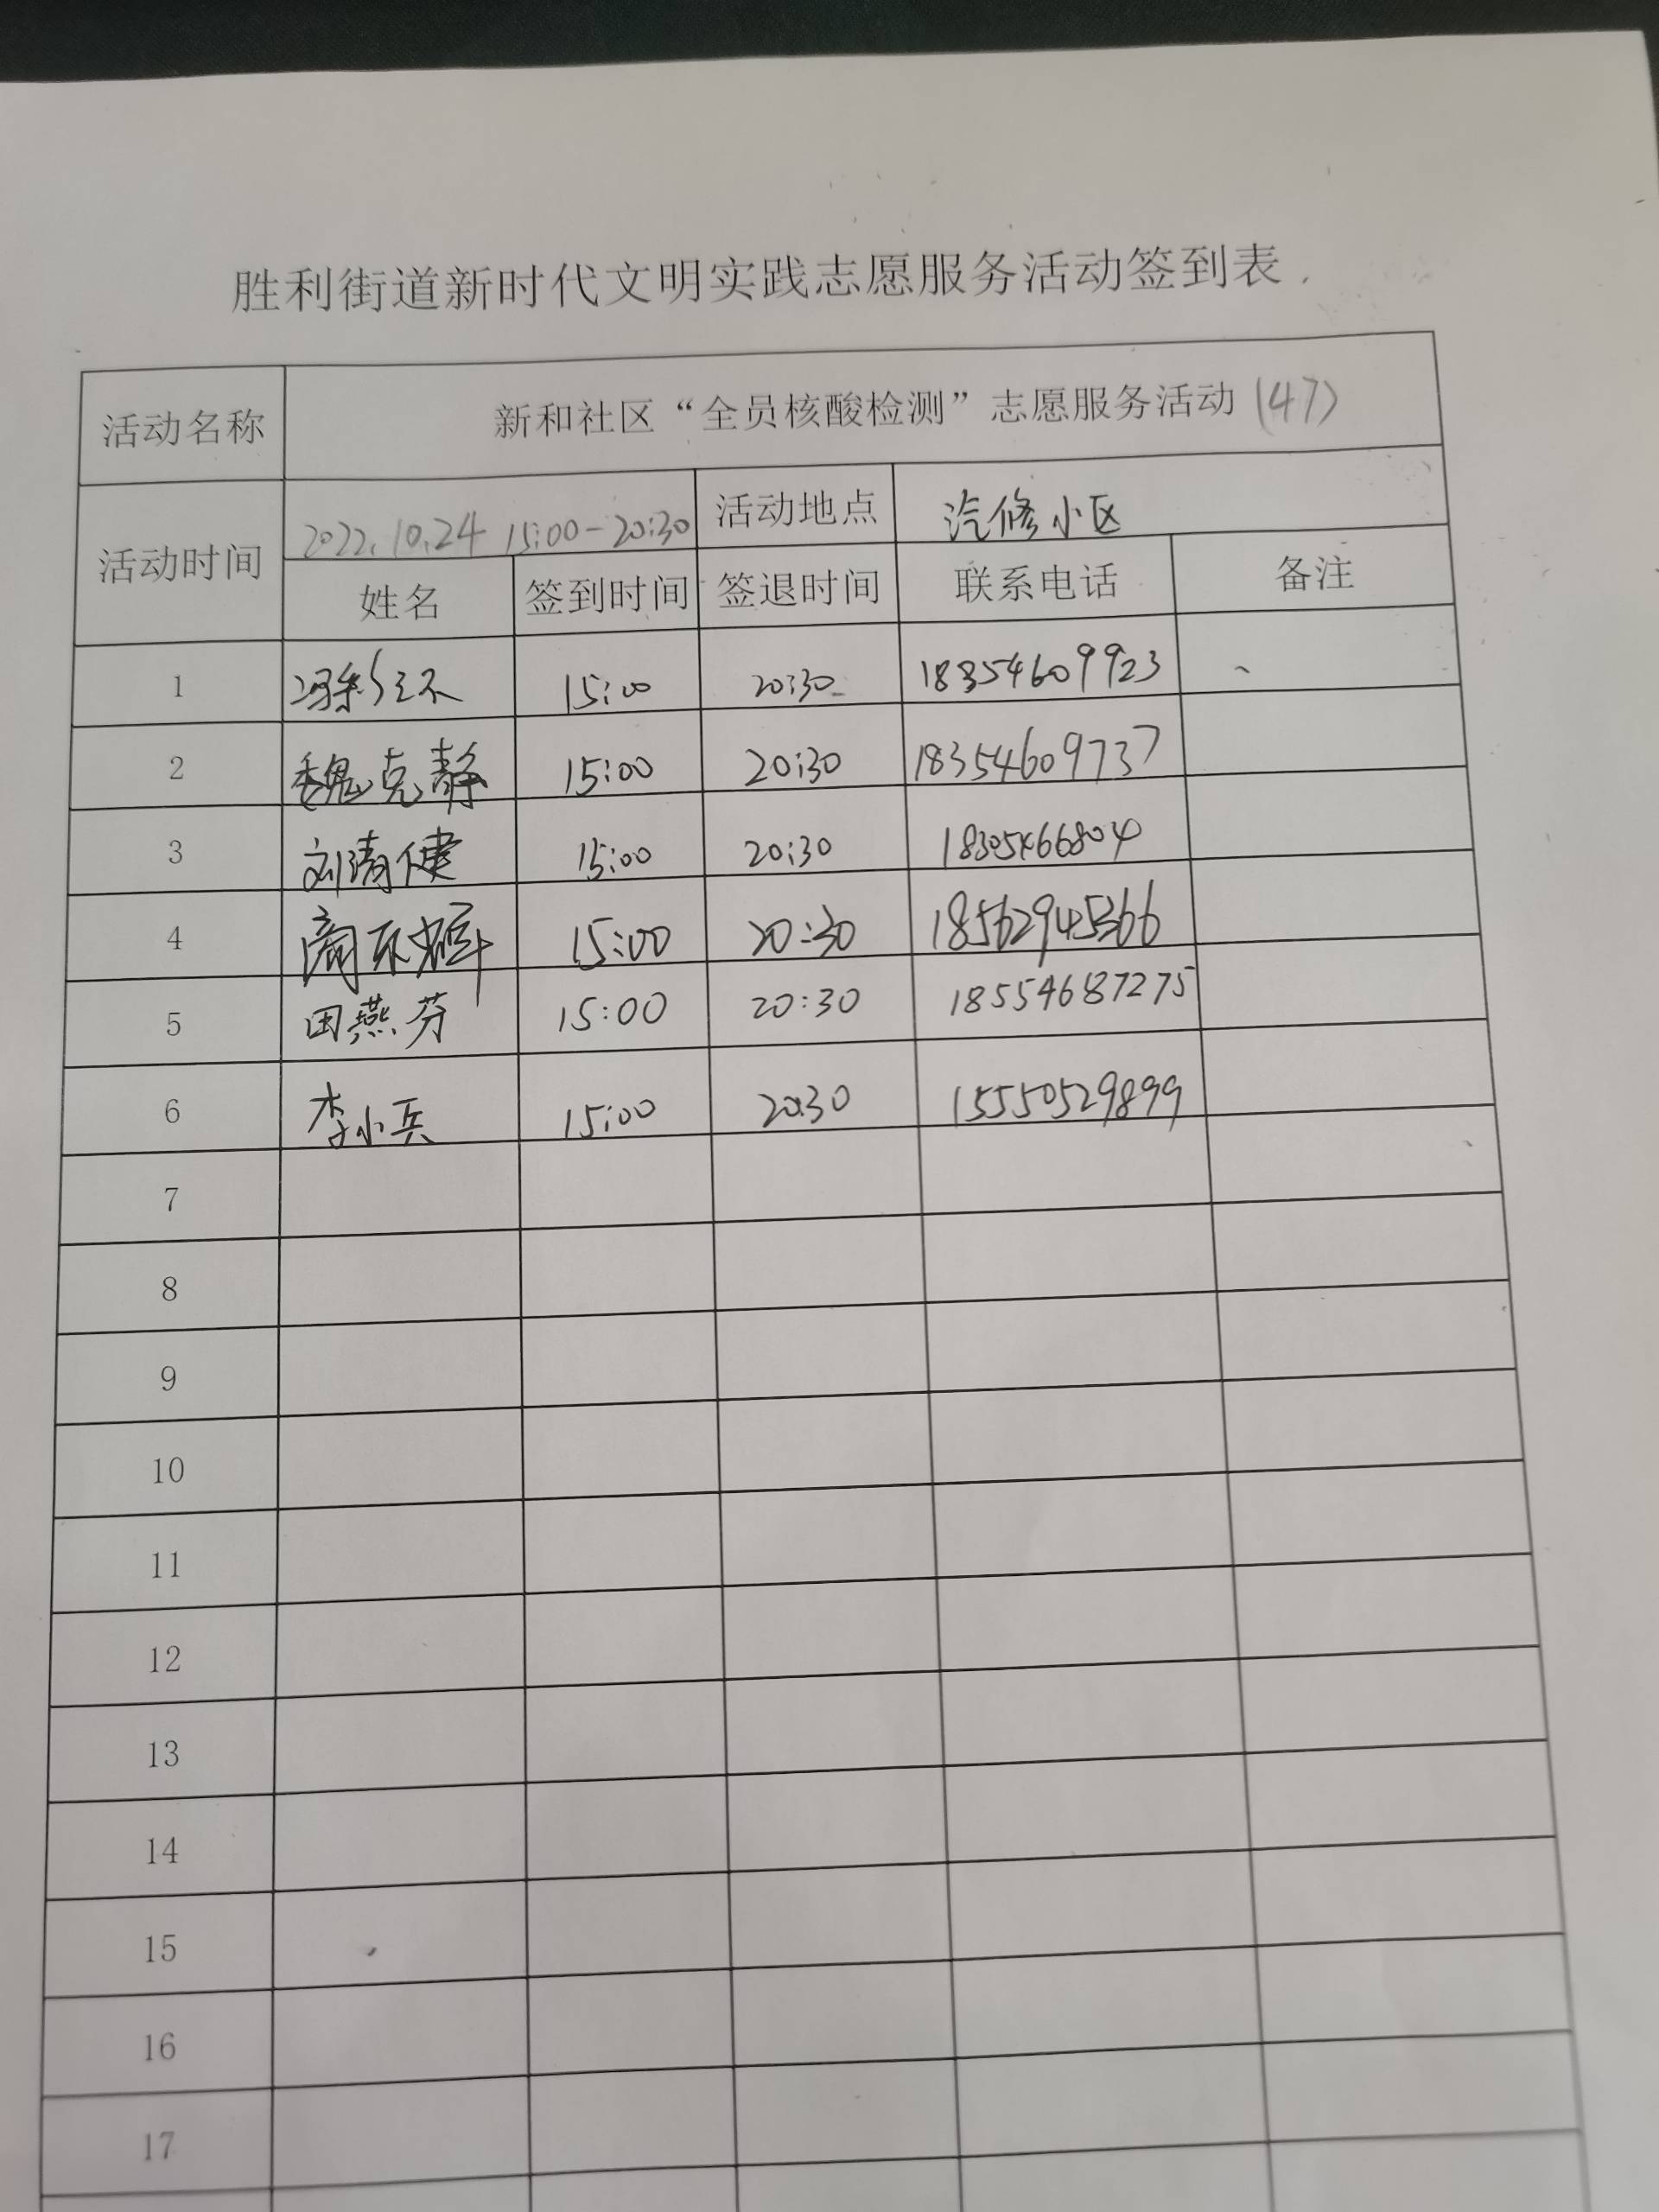 胜利街道新时代文明实践志愿服务活动签到表
活动名称 新和社区“全员核酸检测”志愿服务活动(47)
活动时间 2022.10.24 15:00-20:30 活动地点 汽修小区
姓名 签到时间 签退时间 联系电话 备注
1 15:00 20:30 18354609923
2 魏克静 15:00 20:30 18354609737
3 刘清健 15:00 20:30 18305466804
4 15:00 20:30
5 田燕芬 15:00 20:30 18554687275
6 李小兵 15:00 20:30 15550529899
7
8
9
10
11
12
13
14
15
16
17